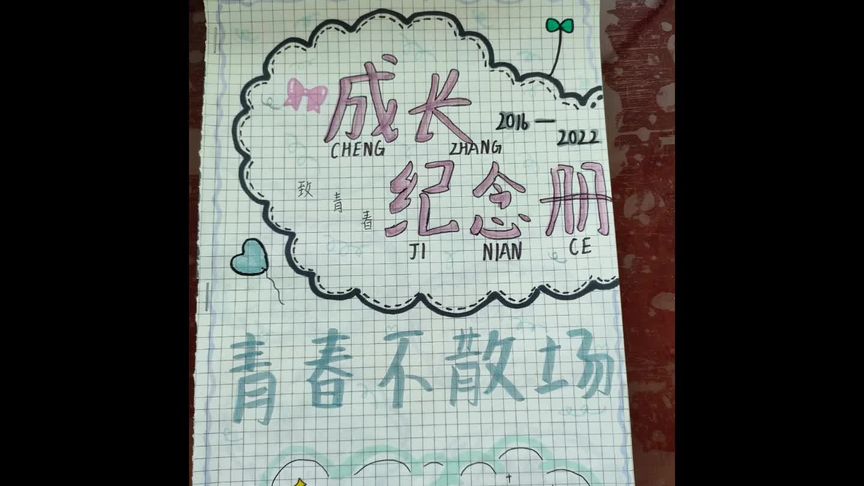 成长 2016—2022
CHENG ZHANG
致青春
纪念册
JI NIAN CE
青春不散场